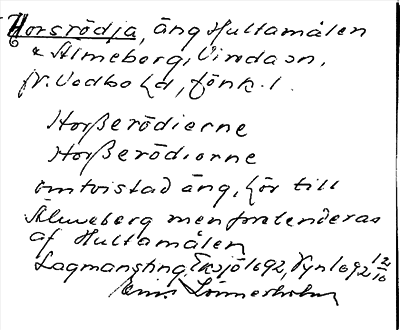 Horsrödja, äng Hultamålen
& Älmeborg, Virda sn,
N. Vedbo hd, Jönk. l.
Horßerödierne
Horßerödiorne
omtvistad äng, hör till
Älmeberg men pretenderas
af Hultamålen
Lagmansting, Eksjö 1692, Syn 1692 12/10
Lönnerholm